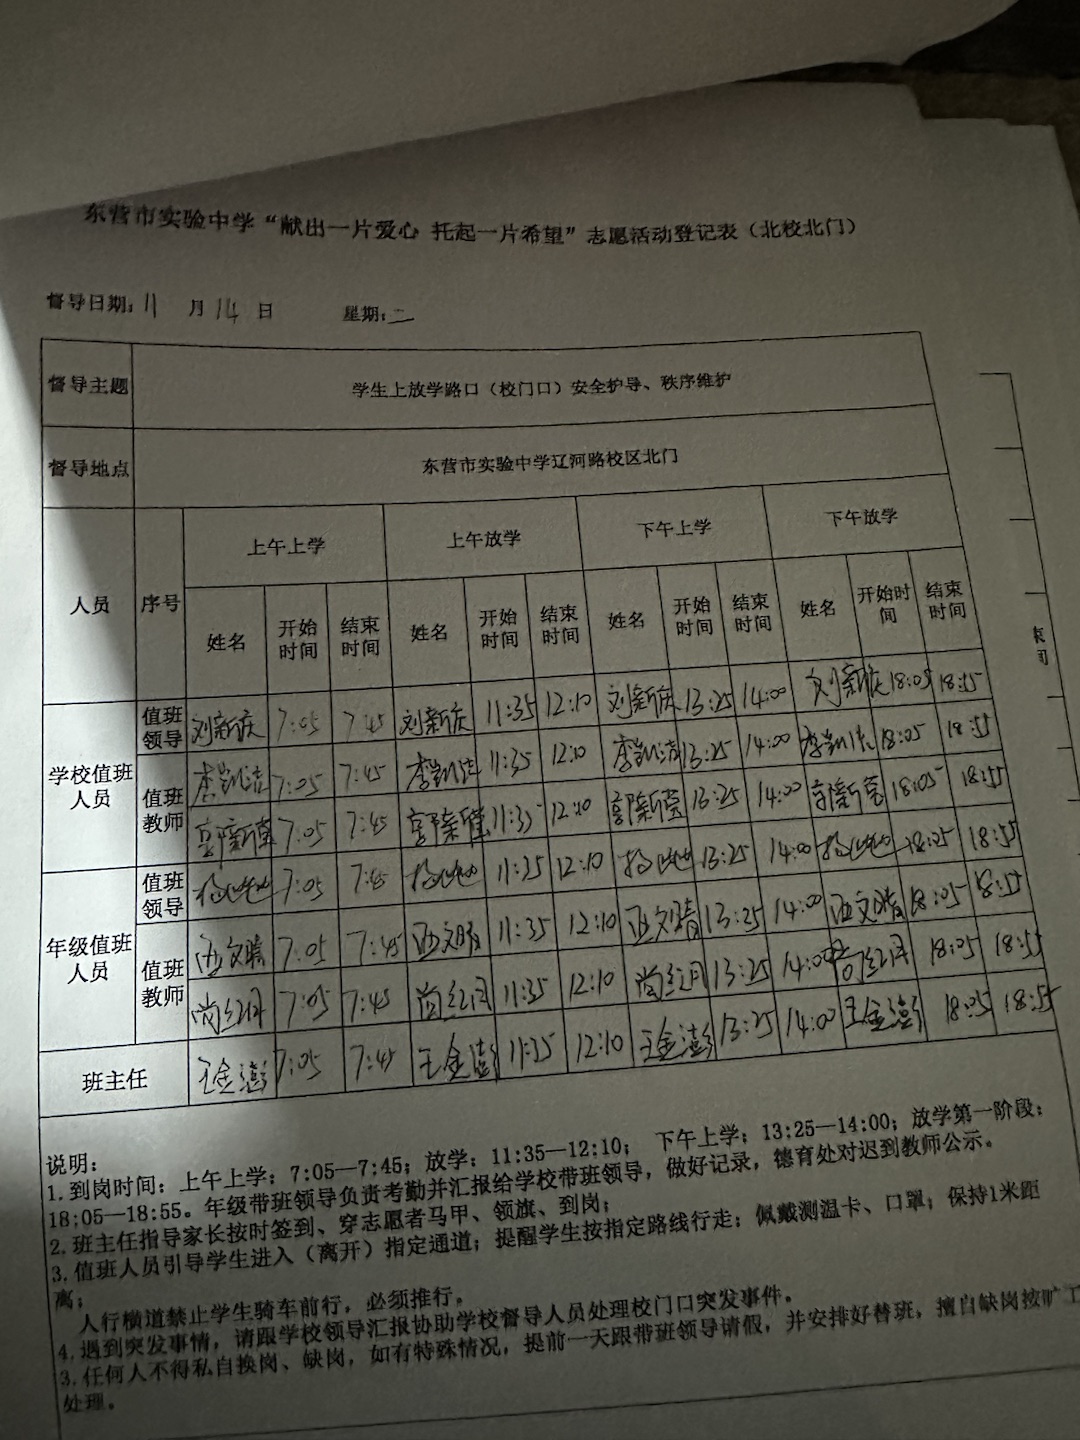 东营市实验中学“献出一片爱心 托起一片希望”志愿活动登记表（北校北门）
督导日期：11 月 14 日 星期：二
督导主题 学生上放学路口（校门口）安全护导、秩序维护
督导地点 东营市实验中学辽河路校区北门
人员 序号 上午上学 上午放学 下午上学 下午放学
姓名 开始时间 结束时间 姓名 开始时间 结束时间 姓名 开始时间 结束时间 姓名 开始时间 结束时间
学校值班人员 值班领导 刘新庆 7:05 7:45 刘新庆 11:35 12:10 刘新庆 13:25 14:00 刘新庆 18:05 18:55
值班教师 李凯洁 7:05 7:45 李凯洁 11:35 12:10 李凯洁 13:25 14:00 李凯洁 18:05 18:55
7:05 7:45 11:35 12:10 13:25 14:00 18:05 18:55
年级值班人员 值班领导 7:05 7:45 11:35 12:10 13:25 14:00 18:05 18:55
值班教师 7:05 7:45 11:35 12:10 13:25 14:00 18:05 18:55
尚红月 7:05 7:45 尚红月 11:35 12:10 尚红月 13:25 14:00 尚红月 18:05 18:55
班主任 王金澎 7:05 7:45 王金澎 11:35 12:10 王金澎 13:25 14:00 王金澎 18:05 18:55
说明：
1.到岗时间：上午上学：7:05—7:45；放学：11:35—12:10； 下午上学：13:25—14:00；放学第一阶段：
18:05—18:55。年级带班领导负责考勤并汇报给学校带班领导，做好记录，德育处对迟到教师公示。
2.班主任指导家长按时签到、穿志愿者马甲、领旗、到岗；
3.值班人员引导学生进入（离开）指定通道；提醒学生按指定路线行走；佩戴测温卡、口罩；保持1米距
离；
人行横道禁止学生骑车前行，必须推行。
4.遇到突发事情，请跟学校领导汇报协助学校督导人员处理校门口突发事件。
3.任何人不得私自换岗、缺岗，如有特殊情况，提前一天跟带班领导请假，并安排好替班，擅自缺岗按旷工
处理。